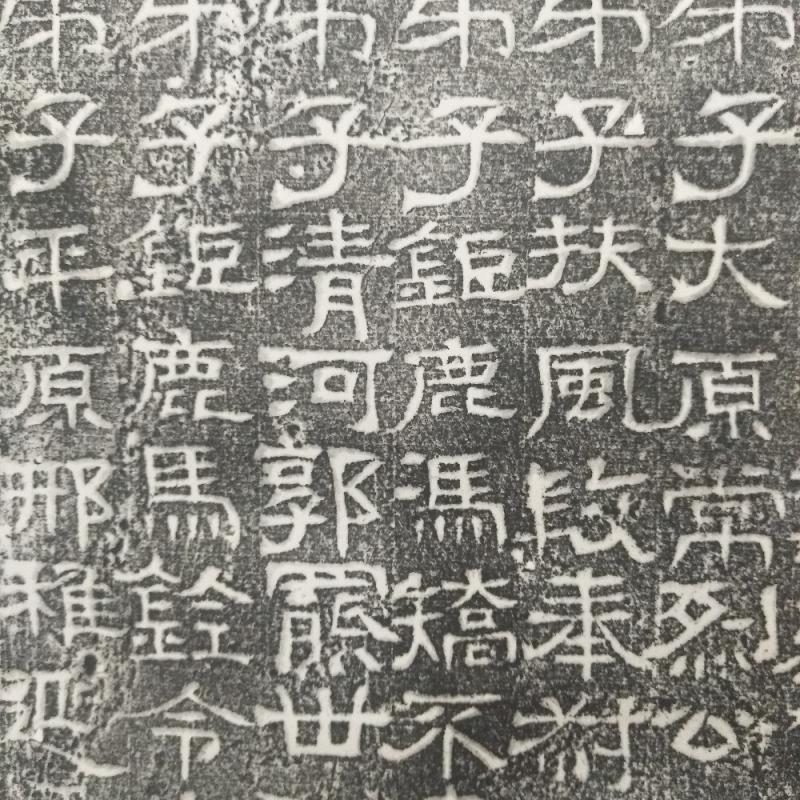 弟子大原常烈公
弟子扶風段奉
弟子鉅鹿馮矯不
弟子清河郭羆世
弟子鉅鹿馬銓令
弟子平原邢雅